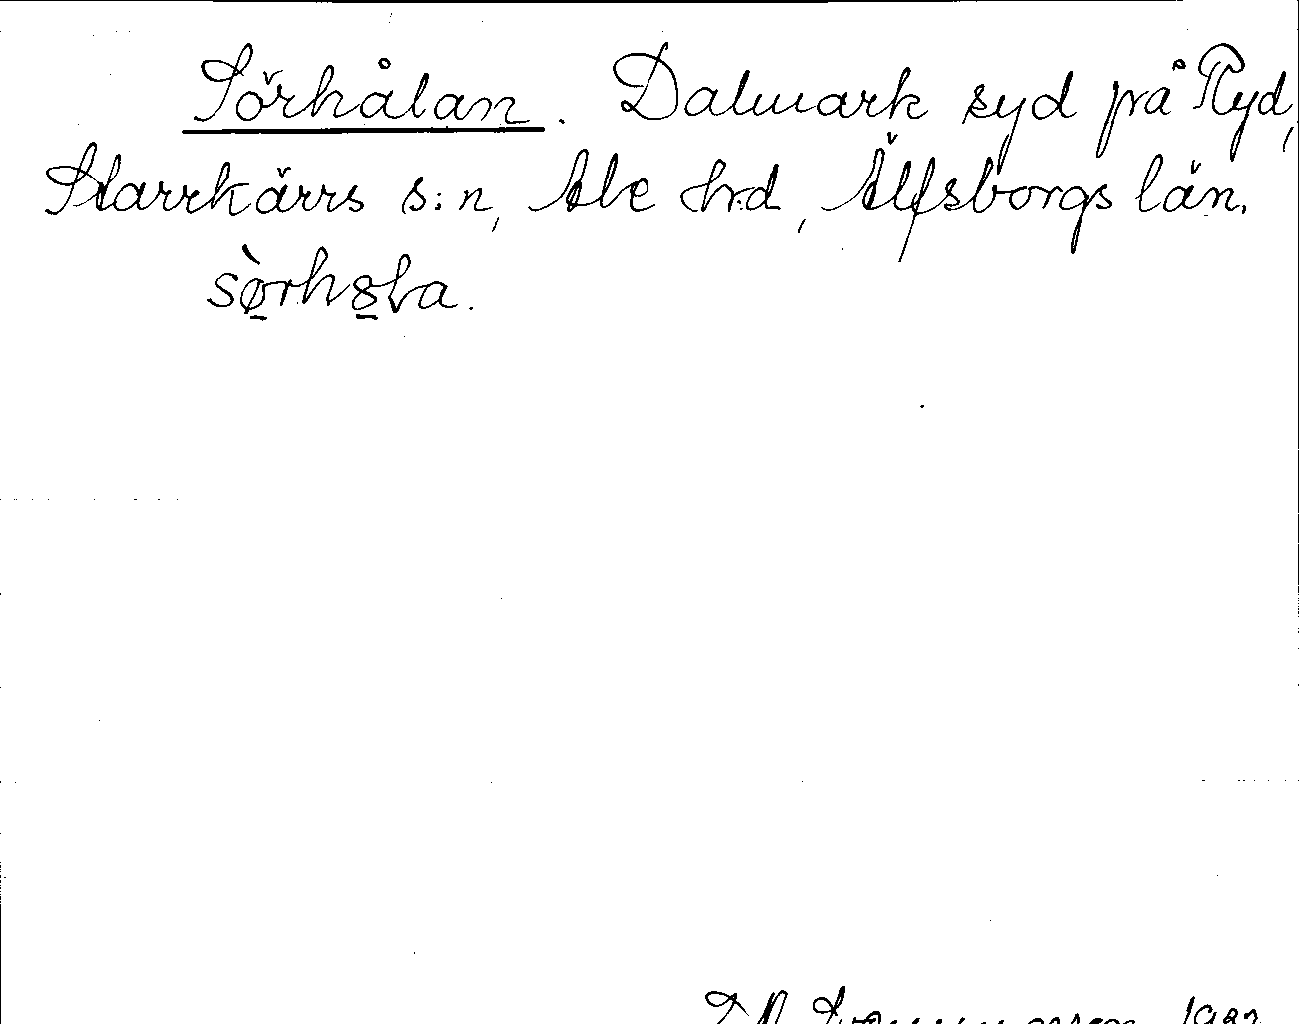 Sörhålan. Dalmark syd på Ryd,
Starrkärrs s:n, Ale hrd, Älfsborgs län.
sö̀rhåla.